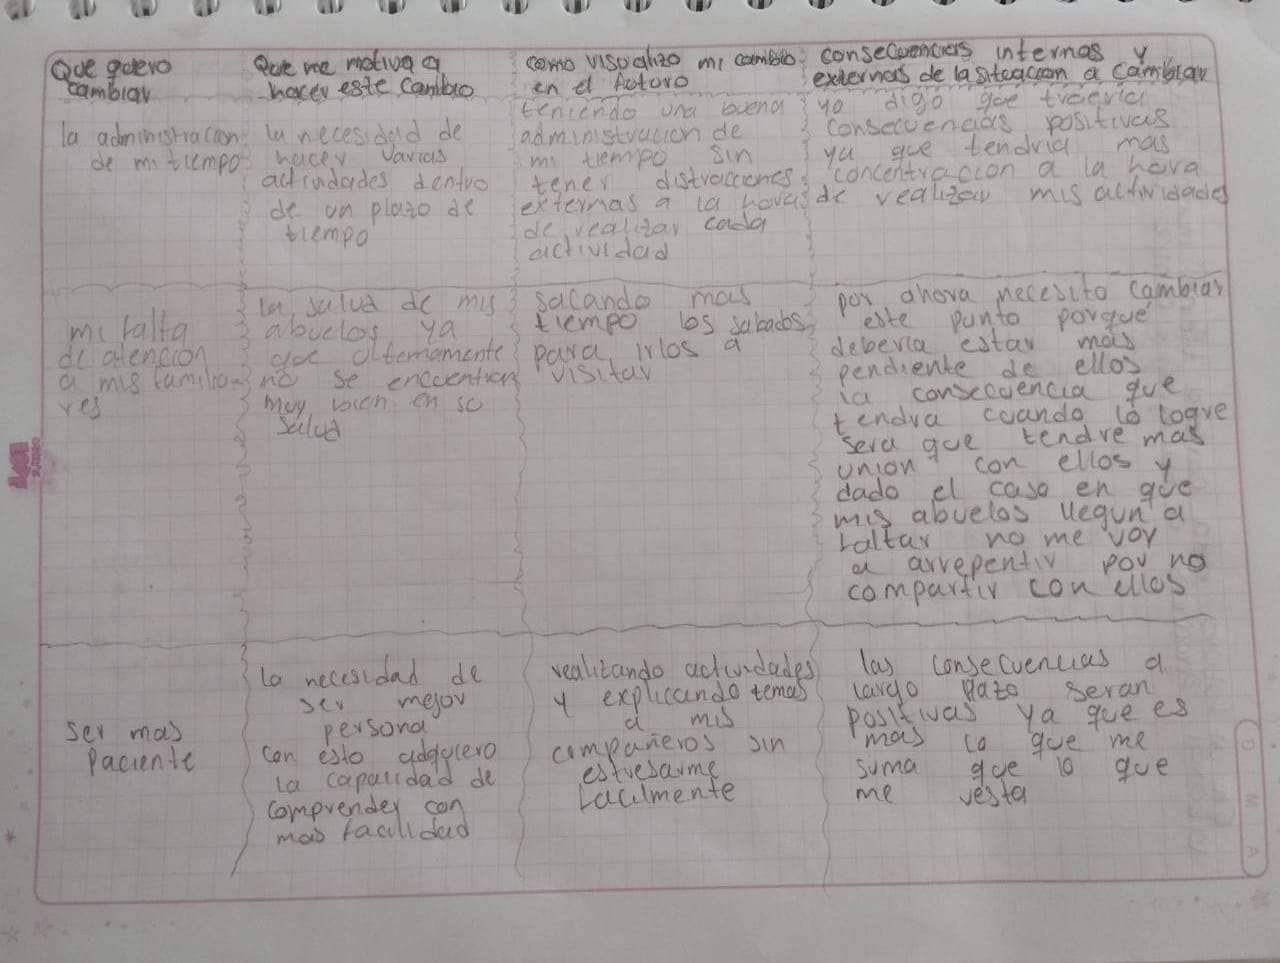 Que quiero
cambiar
Que me motiva a
hacer este cambio
como visualizo mi cambio
en el futuro
consecuencias internas y
externas de la situacion a cambiar
la administracion
de mi tiempo
la necesidad de
hacer varias
actividades dentro
de un plazo de
tiempo
teniendo una buena
administracion de
mi tiempo sin
tener distracciones
externas a la hora
de realizar cada
actividad
yo digo que traeria
consecuencias positivas
ya que tendria mas
concentracion a la hora
de realizar mis actividades
mi falta
de atencion
a mis familia-
res
la salud de mis
abuelos ya
que ultimamente
no se encuentran
muy bien en su
salud
sacando mas
tiempo los sabados
para irlos a
visitar
por ahora necesito cambiar
este punto porque
deberia estar mas
pendiente de ellos
la consecuencia que
tendra cuando lo logre
sera que tendre mas
union con ellos y
dado el caso en que
mis abuelos llegun a
faltar no me voy
a arrepentir por no
compartir con ellos
ser mas
paciente
la necesidad de
ser mejor
persona
con esto adquiero
la capacidad de
comprender con
mas facilidad
realizando actividades
y explicando temas
a mis
compañeros sin
estresarme
facilmente
las consecuencias a
largo plazo seran
positivas ya que es
mas lo que me
suma que lo que
me resta
D M A